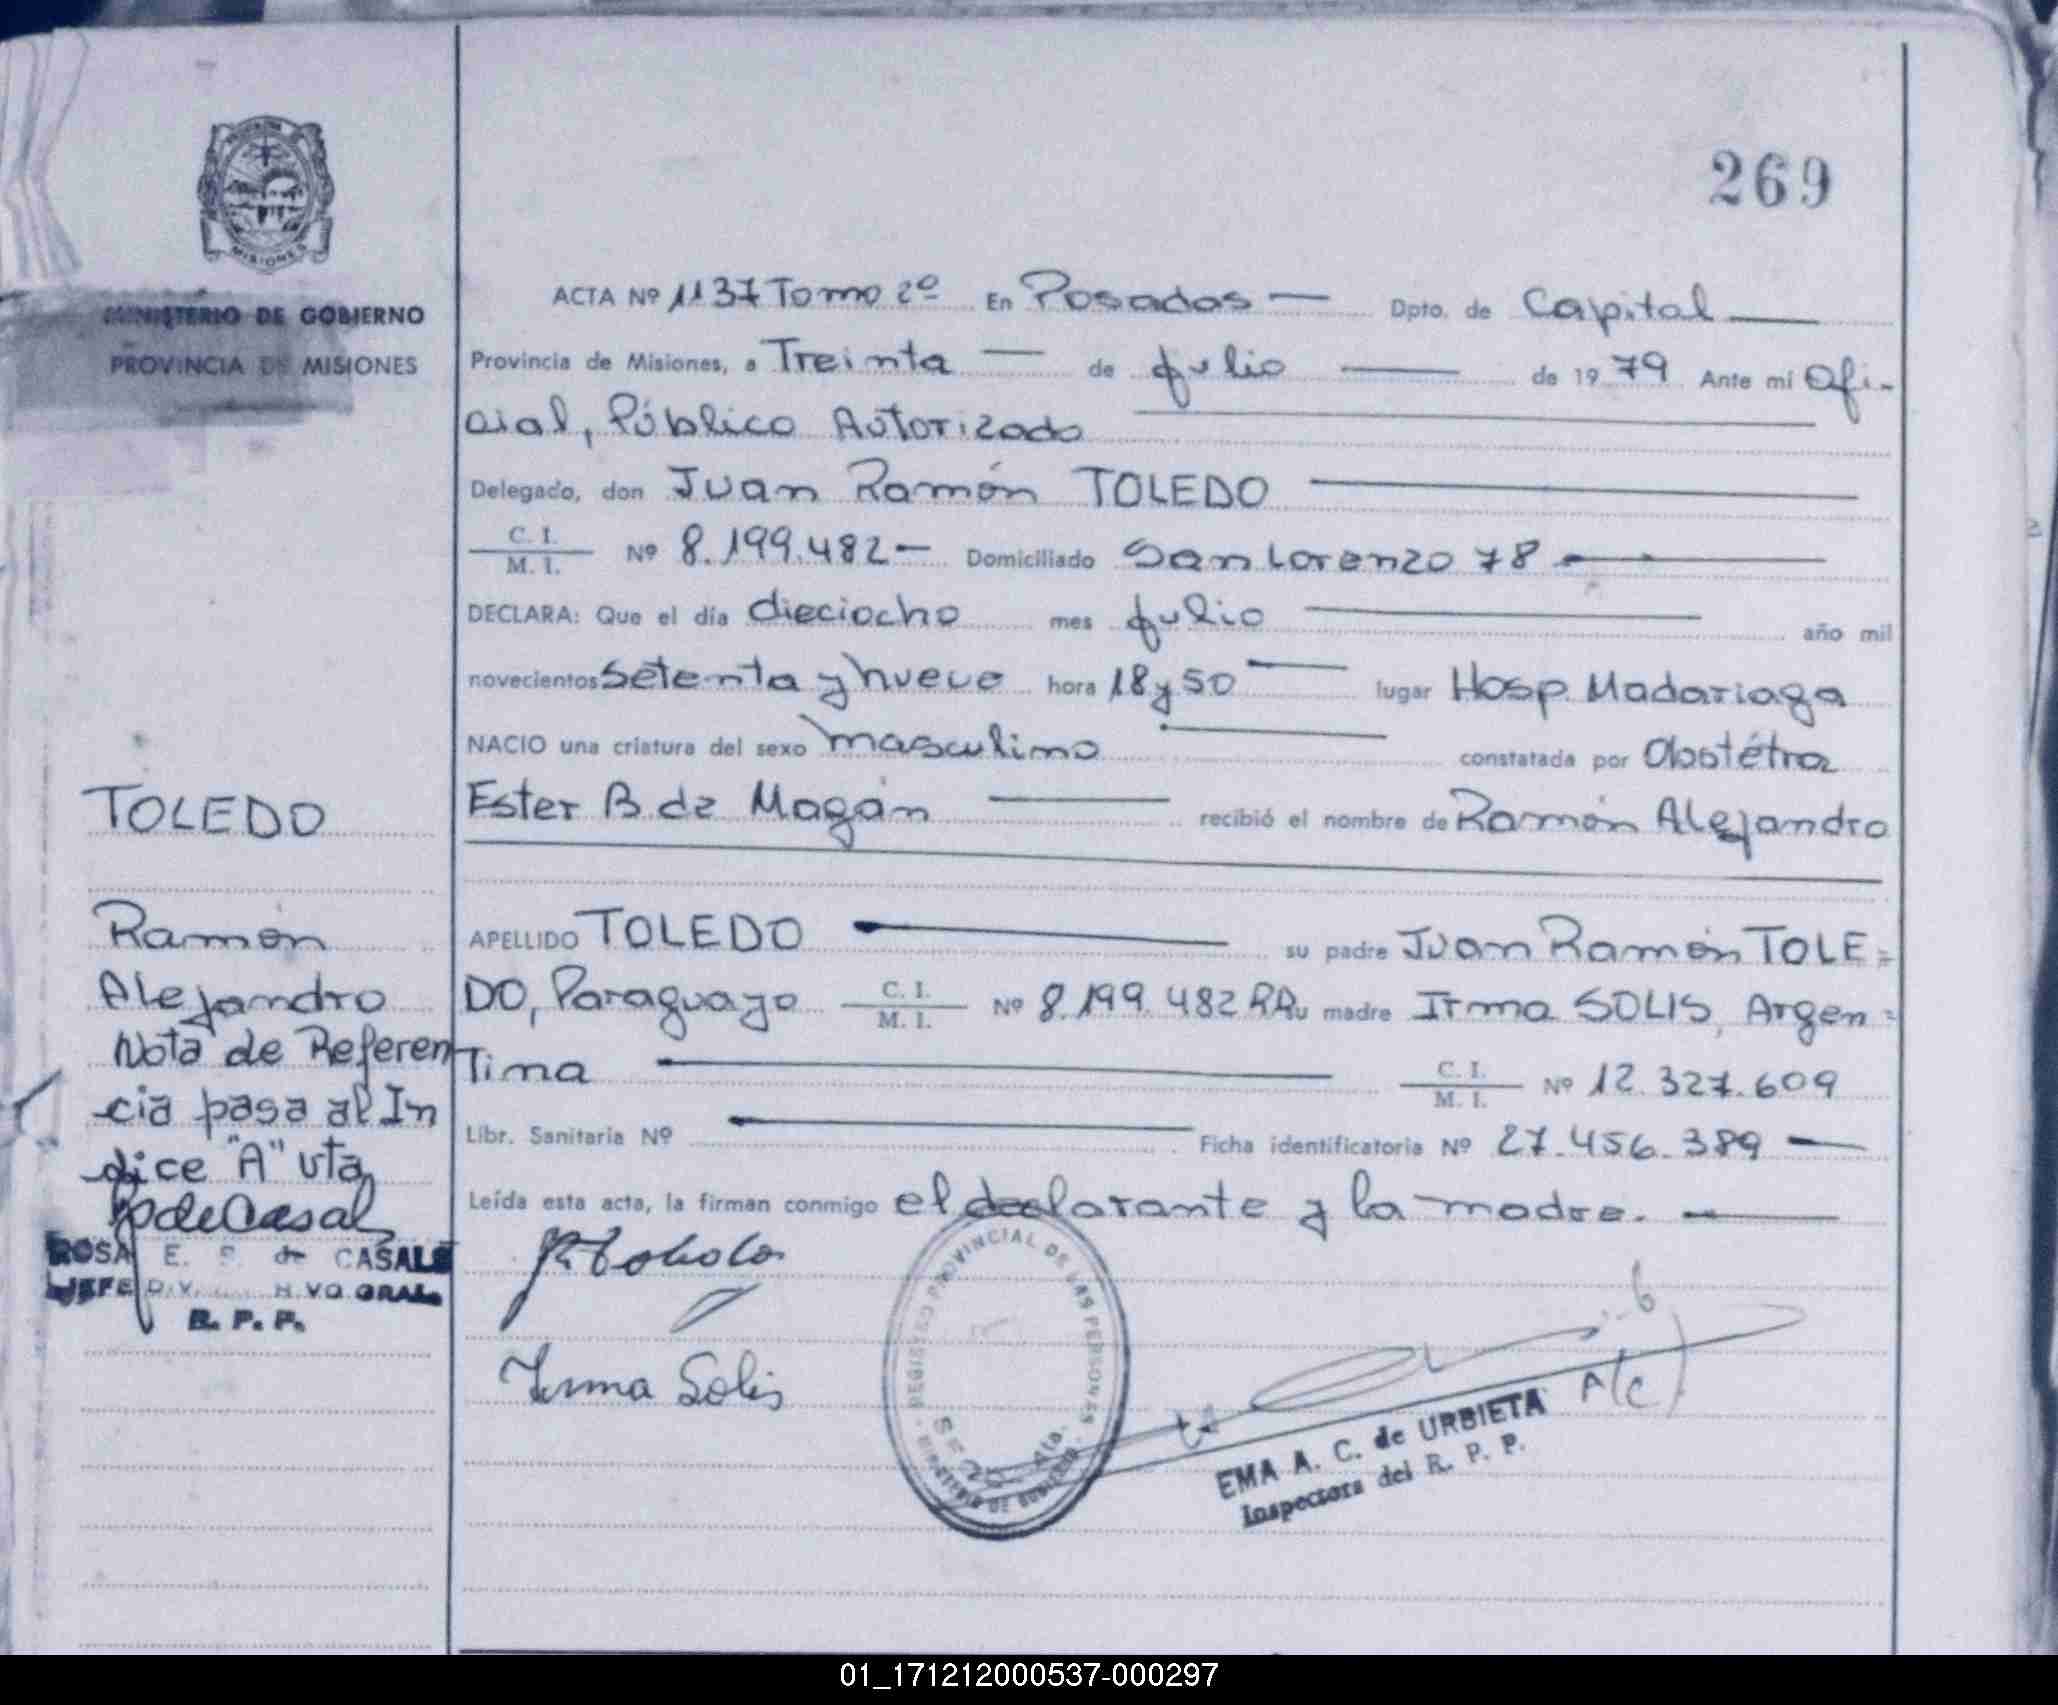 269
MISIONES
MINISTERIO DE GOBIERNO
PROVINCIA DE MISIONES
ACTA Nº 1137 Tomo 2º En Posadas — Dpto. de Capital —
Provincia de Misiones, a Treinta — de Julio — de 19 79 Ante mi Ofi-
cial, Público Autorizado —
Delegado, don Juan Ramón TOLEDO —
C. I.
M. I. Nº 8.199.482 — Domiciliado San Lorenzo 78 —
DECLARA: Que el día dieciocho mes Julio — año mil
novecientos setenta y nueve hora 18 y 50 — lugar Hosp. Madariaga
NACIO una criatura del sexo masculino — constatada por Obstétra
Ester B. de Magán — recibió el nombre de Ramón Alejandro
APELLIDO TOLEDO — su padre Juan Ramón TOLE=
DO, Paraguayo C. I.
M. I. Nº 8.199.482 su madre Irma SOLIS, Argen=
Tina — C. I.
M. I. Nº 12.327.609
Libr. Sanitaria Nº — Ficha identificatoria Nº 27.456.389 —
Leída esta acta, la firman conmigo el declarante y la madre. —
TOLEDO
Ramón
Alejandro
Nota de Referen
cia pasa al In
dice "A" vta
PdeCasal
ROSA E. de CASALS
JEFE DIV. GRAL.
R. P. P.
Irma Solis
REGISTRO PROVINCIAL DE LAS PERSONAS
MINISTERIO DE GOBIERNO
A/C
EMA A. C. de URBIETA
Inspectora del R. P. P.
01_171212000537-000297